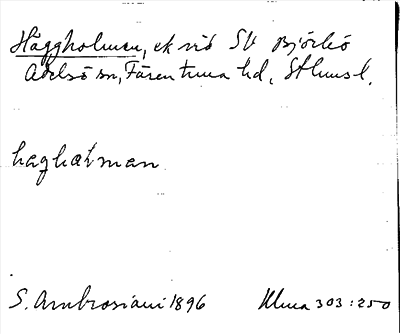 Häggholmen, ek vid SV Björkö
Adelsö sn, Färentuna hd, Sthlms l.
haghalman
S. Ambrosiani 1896 Ulma 303:250